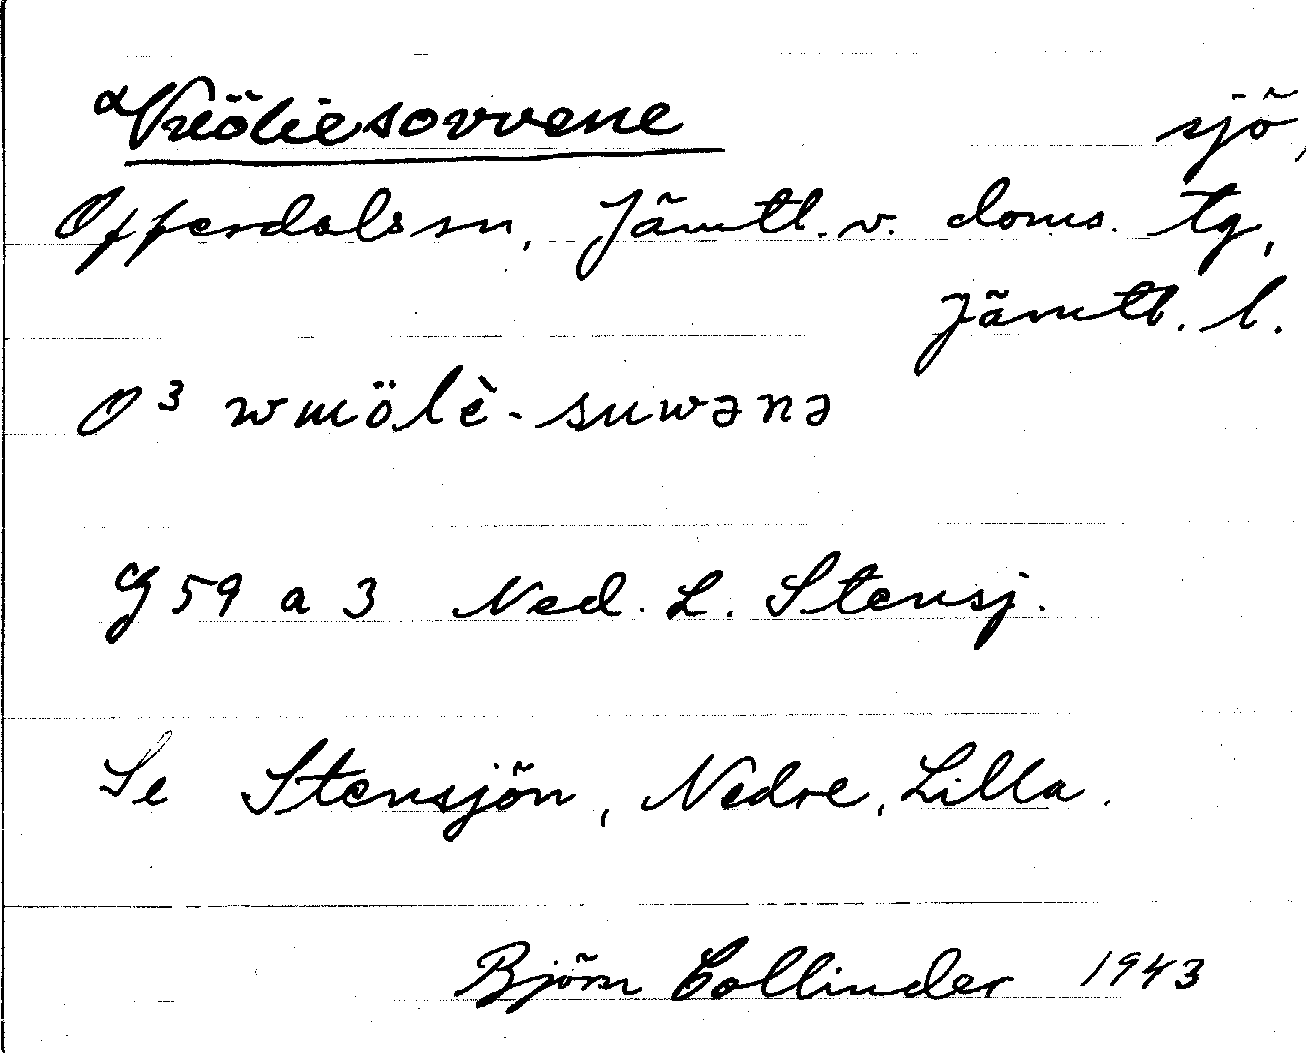 Vuöliesovvene sjö,
Offerdals sn, Jämtl. v. doms. tg,
Jämtl. l.
O 3 wuölè-suwənə
G 59 a 3 Ned. L. Stensj.
Se Stensjön, Nedre, Lilla.
Björn Collinder 1943